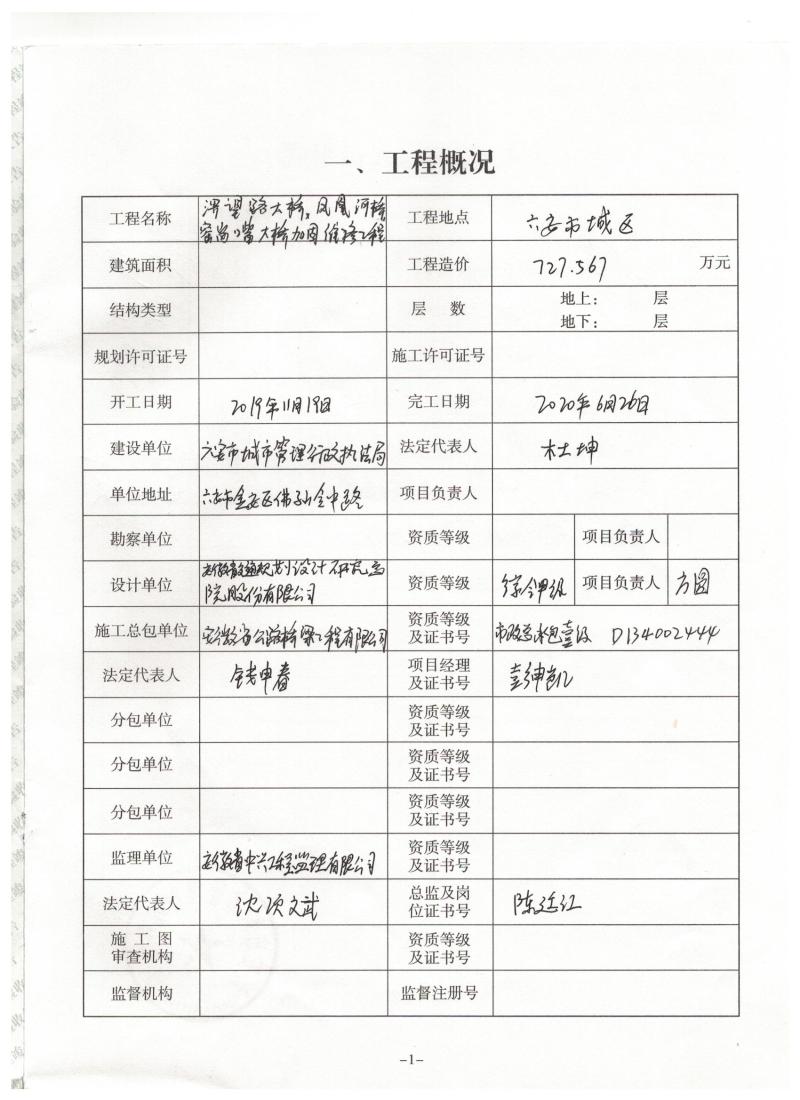 一、工程概况
工程名称 淠望路大桥、凤凰河桥 工程地点 六安市城区
窑岗嘴大桥加固维修工程
建筑面积 工程造价 727.567 万元
结构类型 层 数 地上： 层
地下： 层
规划许可证号 施工许可证号
开工日期 2019年11月19日 完工日期 2020年6月26日
建设单位 六安市城市管理行政执法局 法定代表人 杜坤
单位地址 六安市金安区佛子岭中路 项目负责人
勘察单位 资质等级 项目负责人
设计单位 安徽省交通规划设计研究总 资质等级 综合甲级 项目负责人 方圆
院股份有限公司
施工总包单位 安徽省公路桥梁工程有限公司 资质等级
及证书号 市政总承包壹级 D134002444
法定代表人 钱申春 项目经理
及证书号 彭申凯
分包单位 资质等级
及证书号
分包单位 资质等级
及证书号
分包单位 资质等级
及证书号
监理单位 安徽省中兴工程监理有限公司 资质等级
及证书号
法定代表人 沈项文武 总监及岗
位证书号 陈廷江
施 工 图
审查机构 资质等级
及证书号
监督机构 监督注册号
-1-